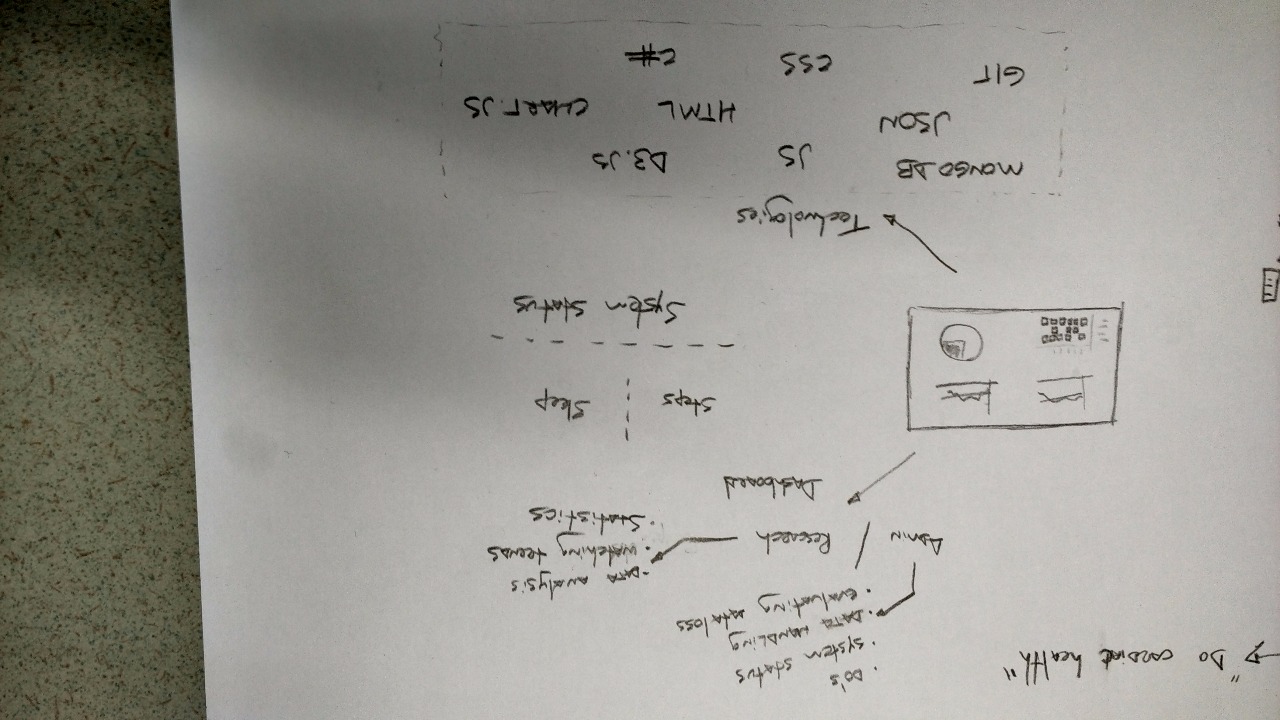 "Do cardiac health"
. DO's
. System status
. DATA HANDLING
. Evaluating data loss
Admin / Research
Dashboard
- DATA analysis
. Watching trends
. Statistics
Steps
Sleep
System Status
Technologies
MONGO DB
JS
D3.JS
JSON
HTML
CHART.JS
GIT
CSS
C#